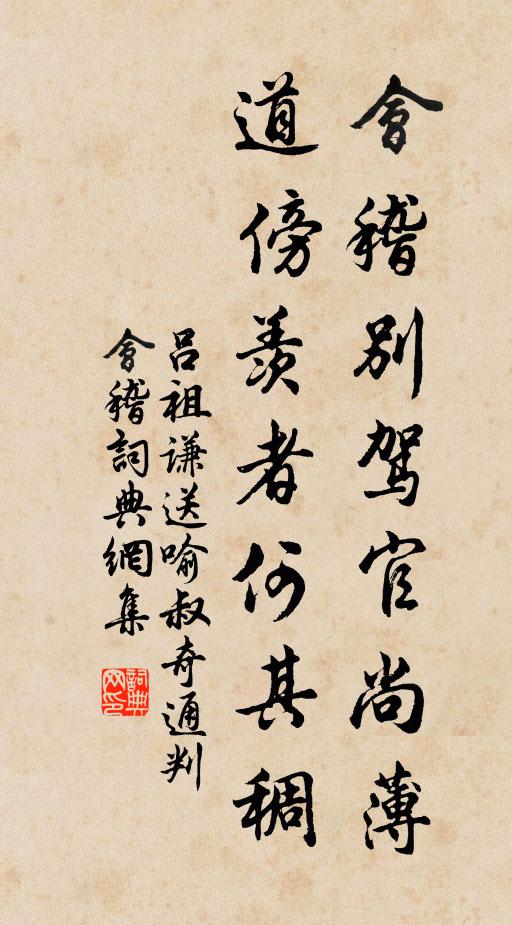 會稽別駕官尚薄
道傍羨者何其稠
呂祖謙送喻叔奇通判
會稽詞典網集
詞典網印